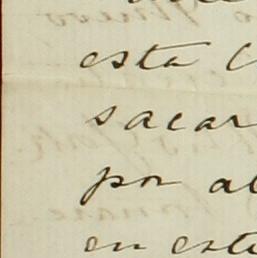 esta
sacar
por al
en est